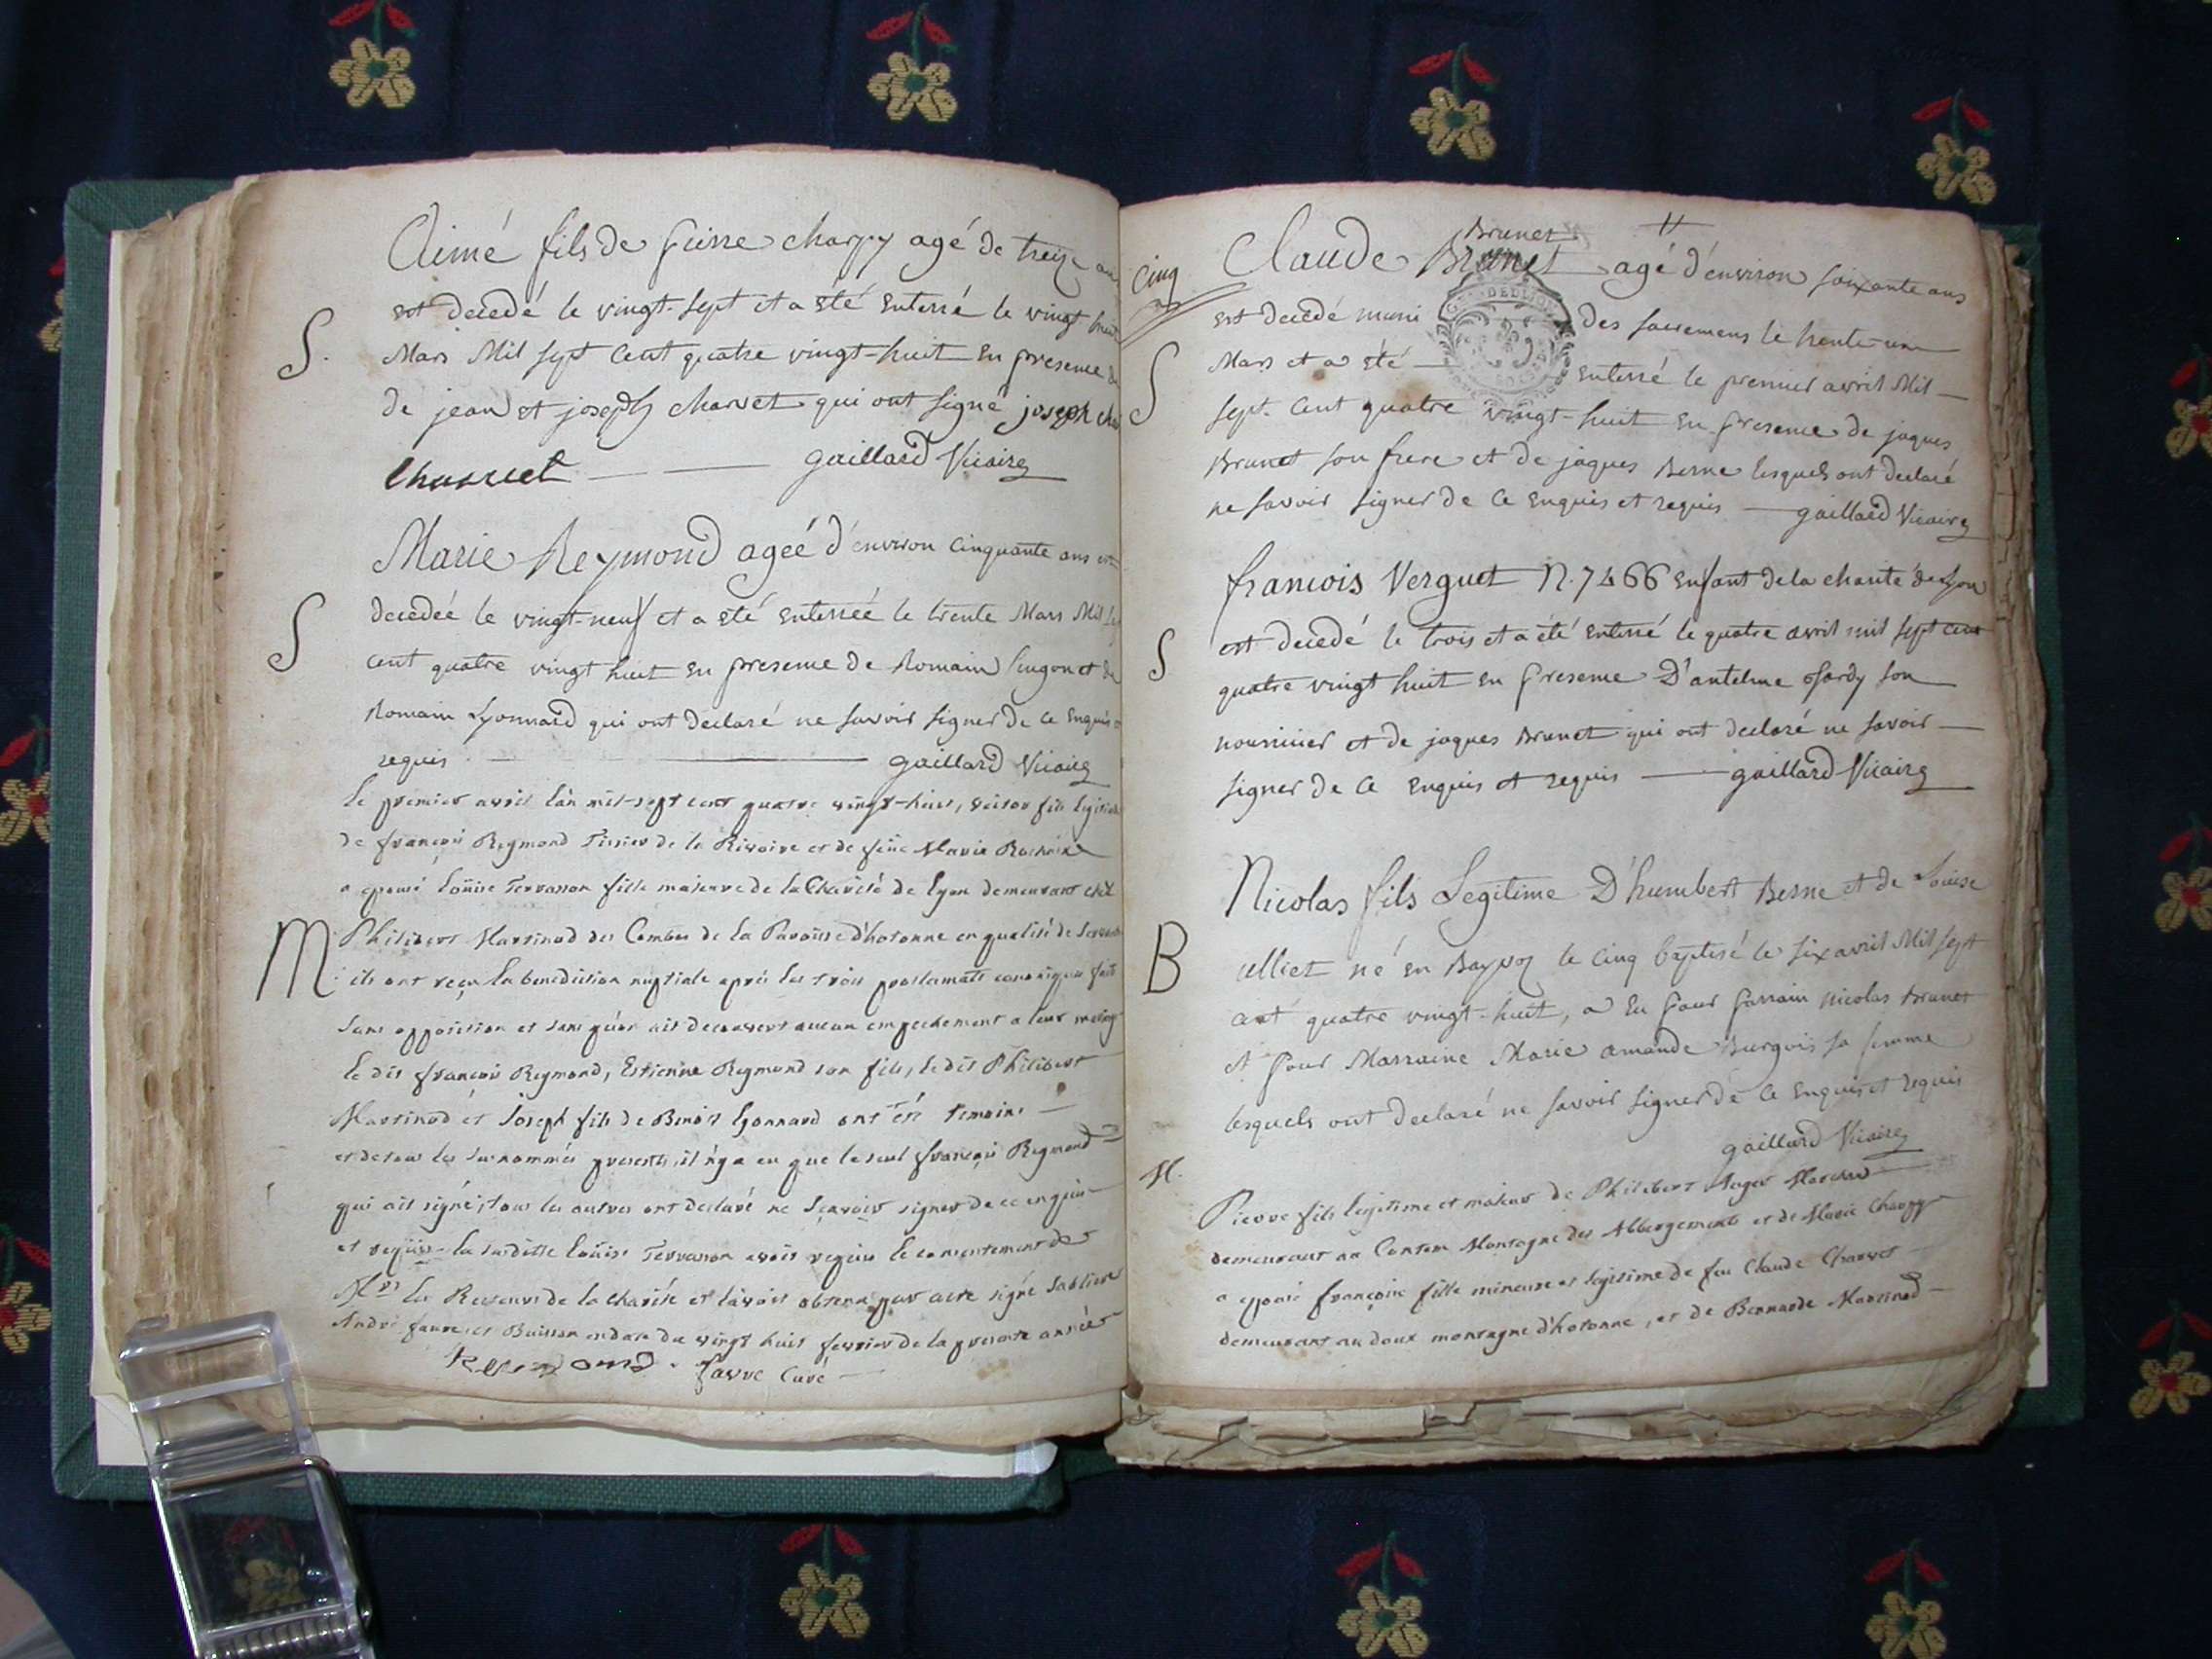 Aimé fils de pierre charpy agé de treize ans
S. est decedé le vingt-sept et a été enterré le vingt huit
Mars Mil sept cent quatre vingt-huit en presence de
de jean et joseph charvet qui ont signé joseph
Charvet gaillard Vicaire
Marie Reymond ageé d'environ cinquante ans est
S decedeé le vingt-neuf et a été enterreé le trente Mars Mil
cent quatre vingt huit en presence de Romain et de
Romain Lyonnard qui ont declaré ne savoir signer de ce enquis
requis gaillard Vicaire
le premier avril l'an mil-sept cent quatre vingt-huit, fils legitime
de françois Reymond de la Rivoire et de feüe Marie
a epousé Loüise Terrasson fille majeure de la Charité de Lyon demeurant chés
M Philibert Martinod des Combes de la Paroisse d'hotonne en qualité de
ils ont reçu la benediction nuptiale après les trois proclamats canoniques faits
sans opposition et sans qu'on ait decouvert aucun empechement a leur mariage
le dit françois Reymond, Estienne Reymond son fils, le dit Philibert
Martinod et Joseph fils de Benoit Lyonnard ont été temoins
et de tous les surnommés presents, il n'y a eu que le seul françois Reymond
qui ait signé, tous les autres ont declaré ne sçavoir signer de ce enquis
et requis la susditte Loüise Terrasson avoit requis le consentement de
Mrs les Recteurs de la charité et l'avoit obtenu par acte signé
André faure et Buisson en date du vingt huit fevrier de la presente année
Reymond. favre curé
Brunet
cinq Claude Brunet agé d'environ soixante ans
est decedé muni des sacremens le trente-un
S Mars et a été enterré le premier avril Mil
sept-cent quatre vingt-huit en presence de jaques
Brunet son frere et de jaques Berne lesquels ont declaré
ne savoir signer de ce enquis et requis gaillard Vicaire
francois Verguet N. 7466 enfant de la charité de Lyon
S est decedé le trois et a été enterré le quatre avril mil sept cent
quatre vingt huit en presence D'antelme son
nourricier et de jaques Brunet qui ont declaré ne savoir
signer de ce enquis et requis gaillard Vicaire
Nicolas fils Legitime D'humbert Berne et de Louise
B né en le cinq baptisé le six avril Mil sept
cent quatre vingt-huit, a eu pour parrain Nicolas Brunet
et pour Marraine Marie amande sa femme
lesquels ont declaré ne savoir signer de ce enquis et requis
gaillard Vicaire
M. Pierre fils legitime et majeur de Philibert
demeurant au Montagne des Abbergements et de Marie Charpy
a epousé françoise fille mineure et legitime de feu Claude Charvet
demeurant au doux montagne d'hotonne, et de Bernarde Martinod